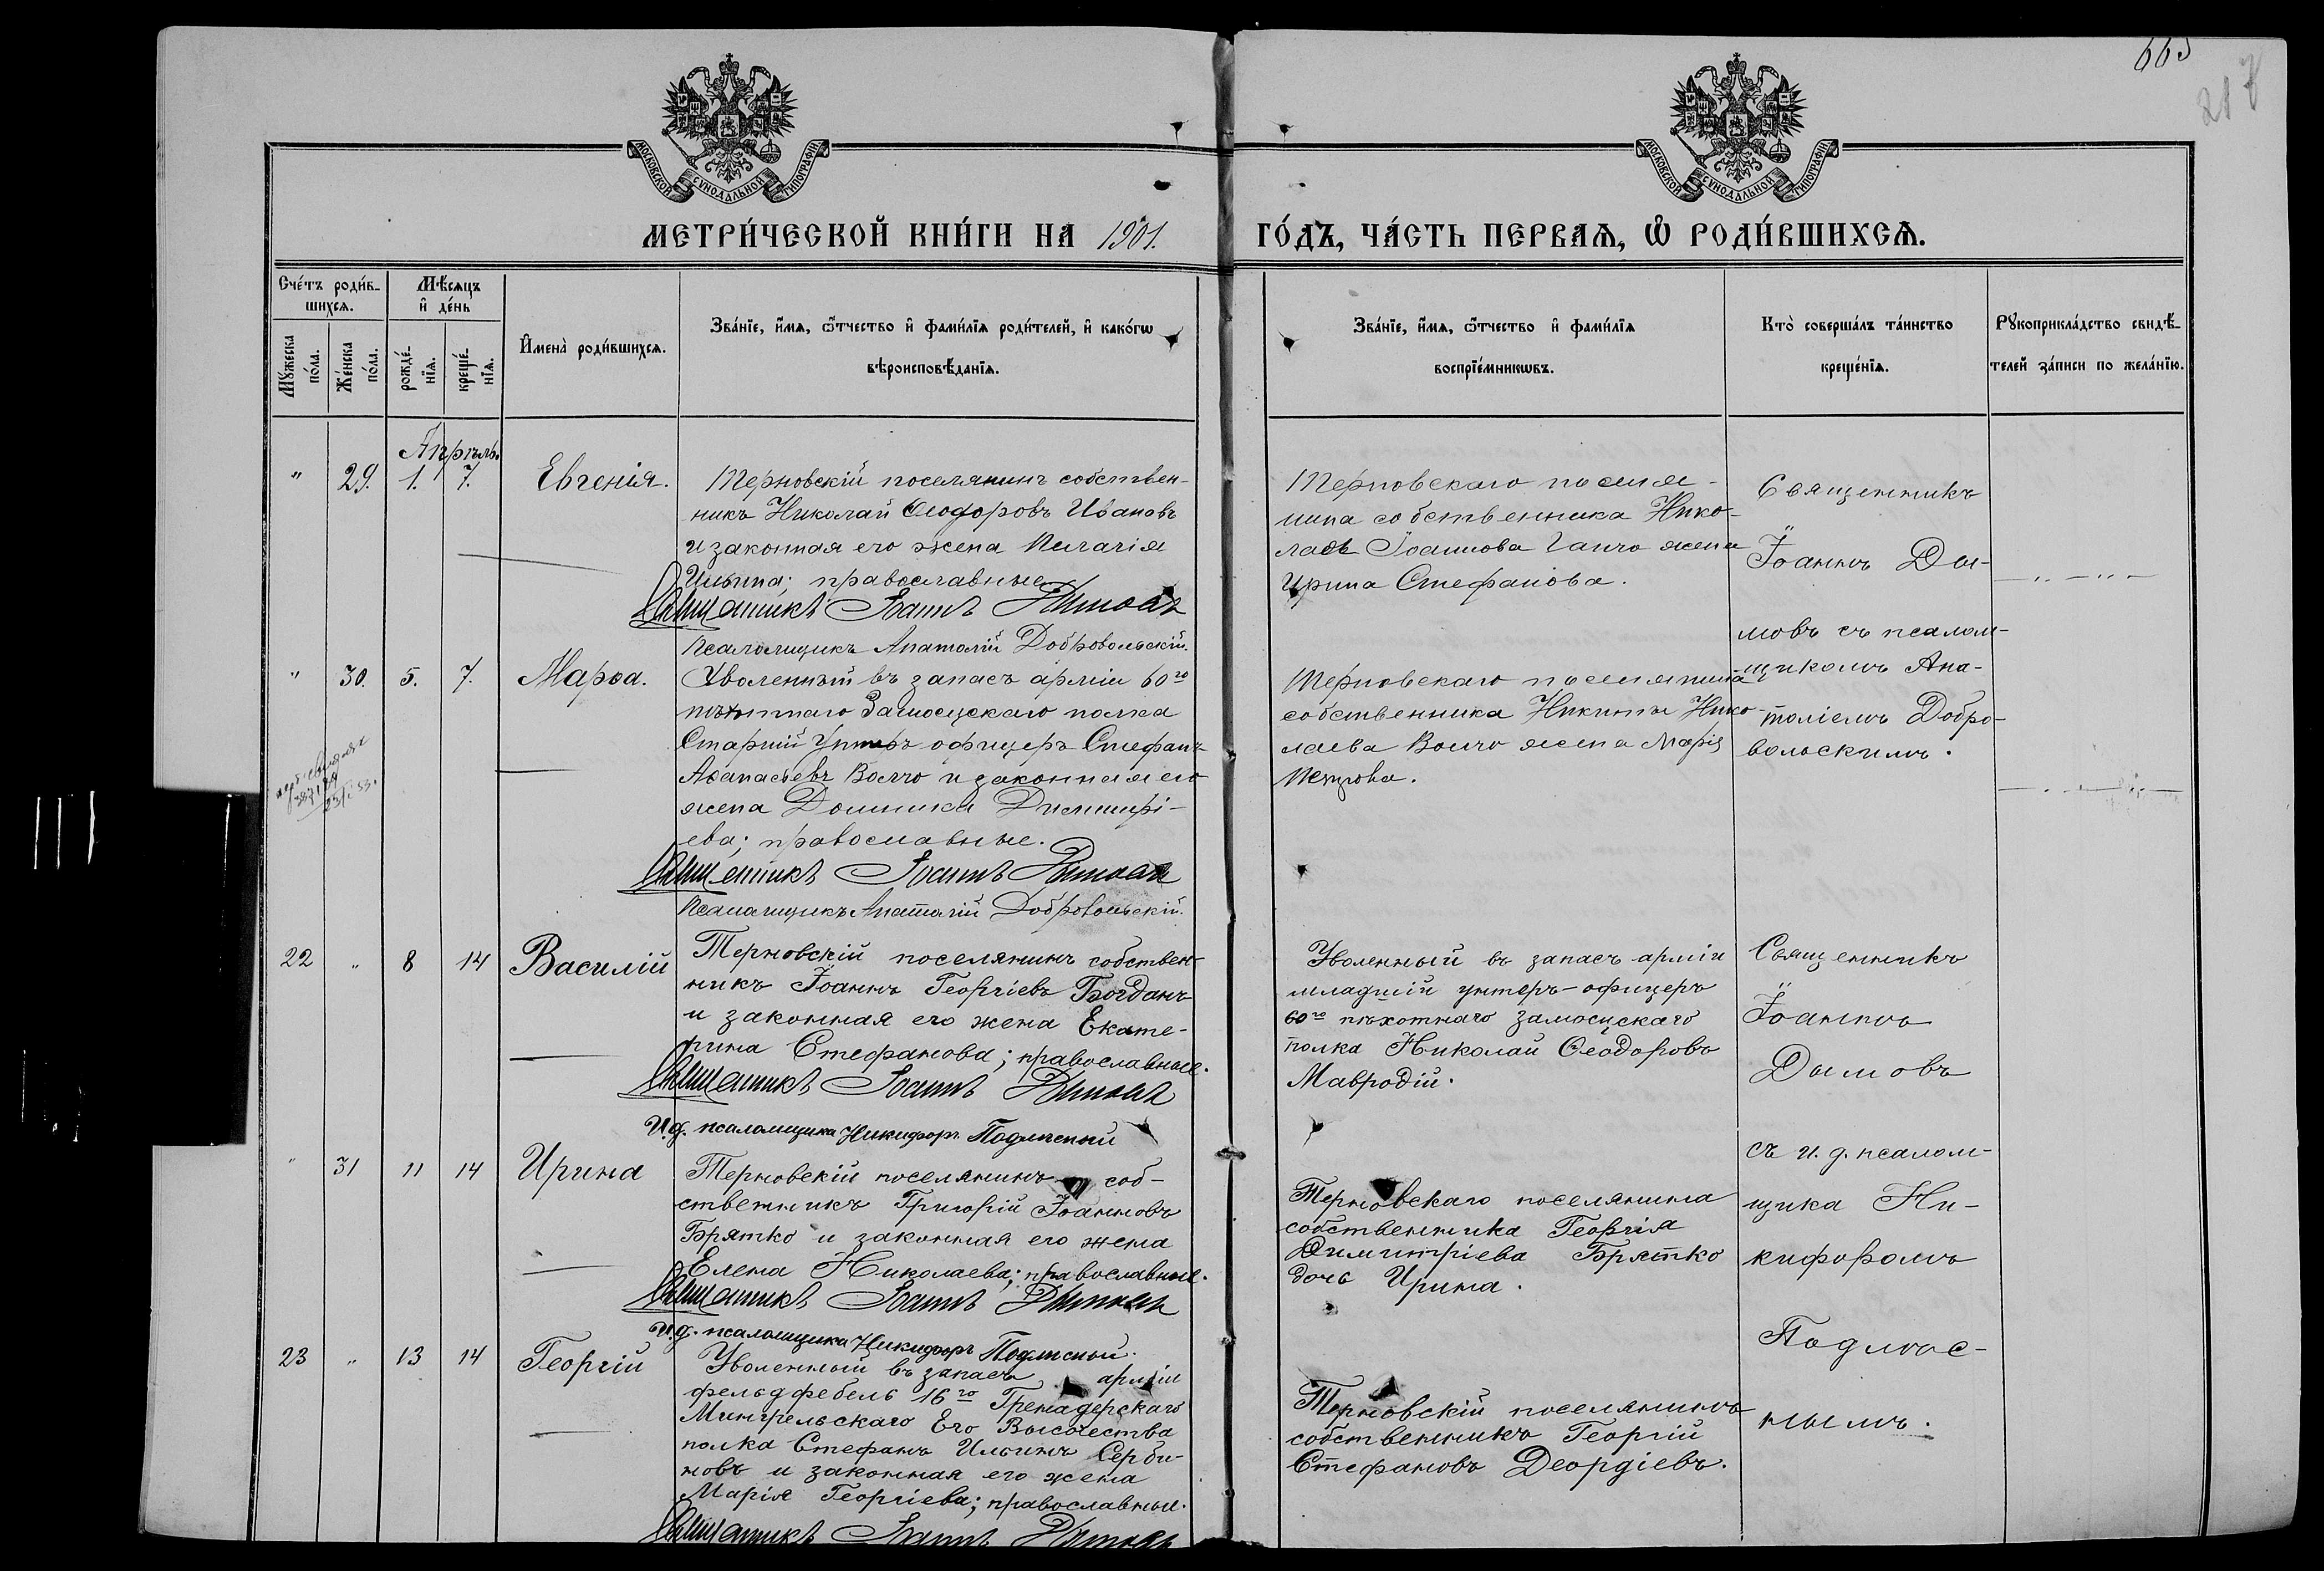 665
217
МОСКОВСКОЙ СѴНОДАЛЬНОЙ ТИПОГРАФІИ
МОСКОВСКОЙ СѴНОДАЛЬНОЙ ТИПОГРАФІИ
МЕТРИ́ЧЕСКОЙ КНИ́ГИ НА 1901.
ГО́ДЪ, ЧА́СТЬ ПЕРВАѦ, Ѡ҆ РОДИ́ВШИХСѦ.
Сче́тъ роди́в-
шихсѧ.
Мѣ́сѧцъ
и҆ де́нь
Мꙋ́жеска
по́ла.
Же́нска
по́ла.
рожде́-
нїѧ.
креще́-
нїѧ.
И҆мена̀ роди́вшихсѧ.
Зва́нїе, и҆́мѧ, ѻ҆́тчество и҆ фами́лїѧ роди́телей, и҆ како́гѡ
вѣроисповѣ́данїѧ.
Зва́нїе, и҆́мѧ, ѻ҆́тчество и҆ фами́лїѧ
воспрїе́мникѡвъ.
Кто̀ соверша́лъ та́инство
креще́нїѧ.
Рꙋкоприкла́дство свидѣ́-
телей за́писи по жела́нїю.
Апрѣль.
" 29. 1. 7. Евгенія.
Терновскій поселянинъ собствен-
никъ Николай Ѳеодоровъ Ивановъ
и законная его жена Пелагія
Ильина; православные
Священникъ Іоаннъ Дымовъ
Псаломщикъ Анатолій Добровольскій.
Терновскаго поселя-
нина собственника Нико-
лая Іоаннова Ганчо жена
Ирина Стефанова.
Священникъ
Іоаннъ Ды-
мовъ съ псалом-
щикомъ Ана-
толіемъ Добро-
вольскимъ.
" 30. 5. 7. Марѳа.
Уволенный въ запасъ арміи 60го
пѣхотнаго Замосцскаго полка
Старшій Унтеръ офицеръ Стефанъ
Аѳанасьевъ Волчо и законная его
жена Домника Димитрі-
ева; православные.
Священникъ Іоаннъ Дымовъ
Псаломщикъ Анатолій Добровольскій.
Терновскаго поселянина
собственника Никиты Нико-
лаева Волчо жена Марія
Петрова.
22 " 8 14 Василій
Терновскій поселянинъ собствен-
никъ Іоаннъ Георгіевъ Богданъ
и законная его жена Екате-
рина Стефанова; православные.
Священникъ Іоаннъ Дымовъ
И.д. псаломщика Никифоръ Подлисный
Уволенный въ запасъ арміи
младшій унтеръ-офицеръ
60го пѣхотнаго Замосцскаго
полка Николай Ѳеодоровъ
Мавродій.
Священникъ
Іоаннъ
Дымовъ
съ и. д. псалом-
щика Ни-
кифоромъ
" 31 11 14 Ирина
Терновскій поселянинъ соб-
ственникъ Григорій Іоанновъ
Брятко и законная его жена
Елена Николаева; православные.
Священникъ Іоаннъ Дымовъ
И.д. псаломщика Никифоръ Подлисный.
Терновскаго поселянина
собственника Георгія
Димитріева Брятко
дочь Ирина.
23 " 13 14 Георгій
Уволенный въ запасъ арміи
фельдфебель 16го Гренадерскаго
Мингрельскаго Его Высочества
полка Стефанъ Ильинъ Серби-
новъ и законная его жена
Марія Георгіева; православные.
Священникъ Іоаннъ Дымовъ
Терновскій поселянинъ
собственникъ Георгій
Стефановъ Деордіевъ.